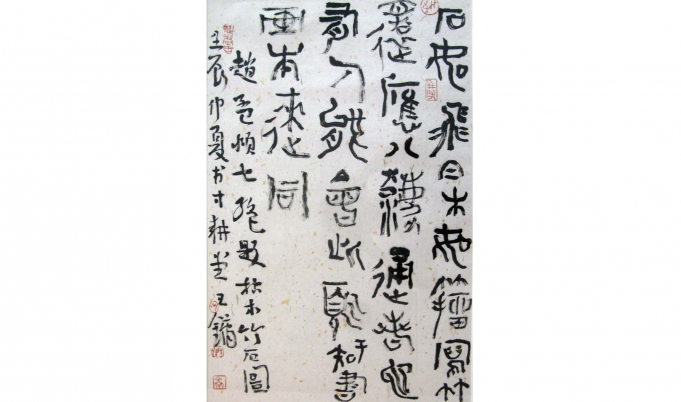 石如飛白木如籀寫竹
還應八灋通若也
有人能會此須知書
畫本來同
趙孟頫七絕題枯木竹石圖
壬辰仲夏书寸耕堂王鏞